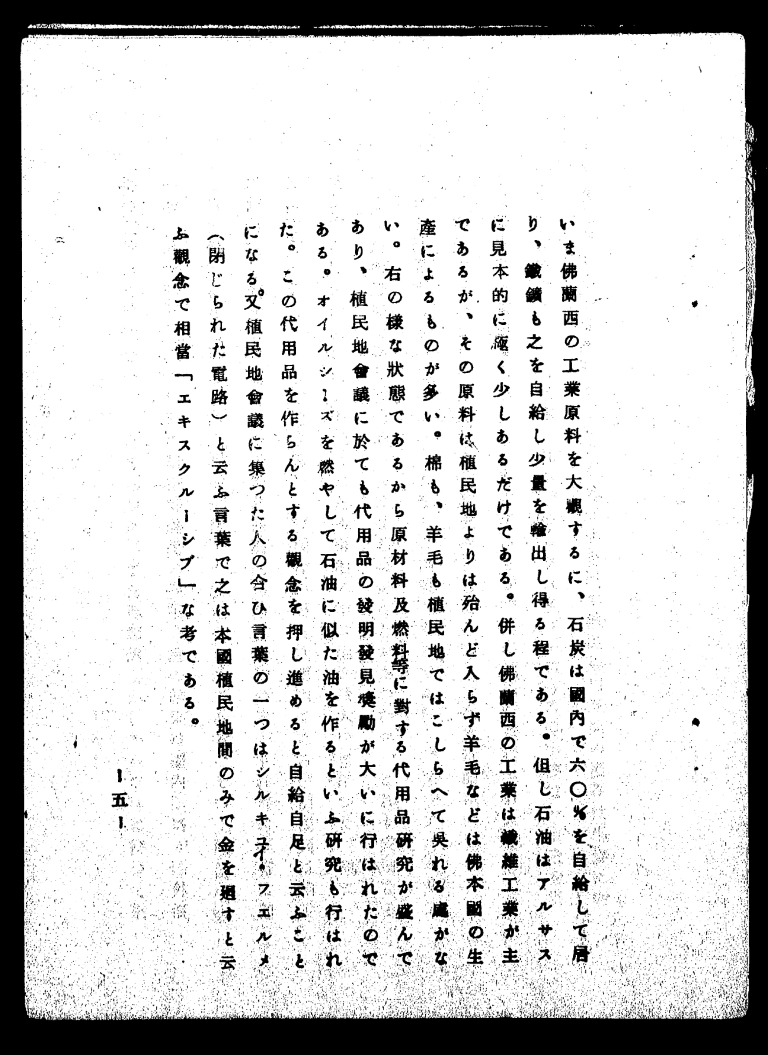 いま佛蘭西の工業原料を大觀するに、石炭は國內で六〇％を自給して居
り、鐵鑛も之を自給し少量を輸出し得る程である。但し石油はアルサス
に見本的に極く少しあるだけである。併し佛蘭西の工業は纎維工業が主
であるが、その原料は植民地よりは殆んど入らず羊毛などは佛本國の生
產によるものが多い。棉も、羊毛も植民地ではこしらへて吳れる處がな
い。右の樣な狀態であるから原材料及燃料等に對する代用品硏究が盛んで
あり、植民地會議に於ても代用品の發明發見奬勵が大いに行はれたので
ある。オイルシーズを燃やして石油に似た油を作るといふ硏究も行はれ
た。この代用品を作らんとする觀念を押し進めると自給自足と云ふこと
になる。又植民地會議に集つた人の合ひ言葉の一つはシルキユイ・フエルメ
（閉じられた電路）と云ふ言葉で之は本國植民地間のみで金を廻すと云
ふ觀念で相當「エキスクルーシブ」な考である。
ー五ー